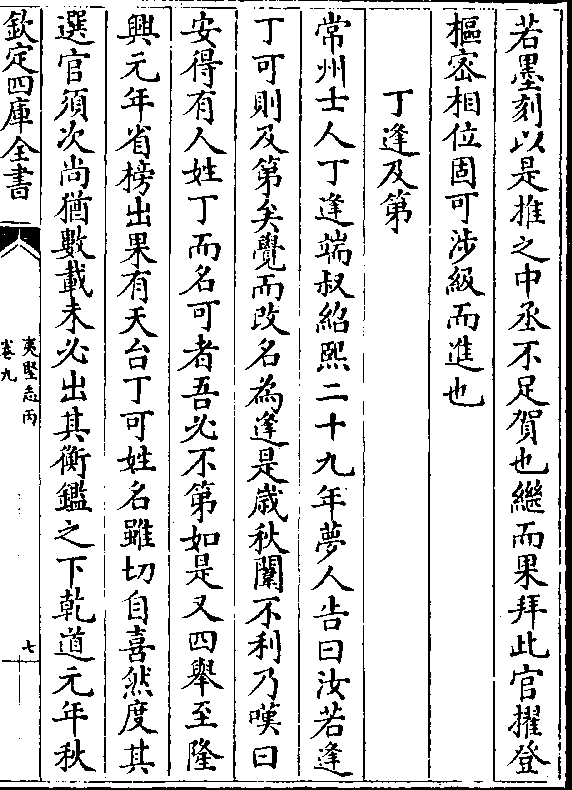 若墨刻以是推之中丞不足賀也繼而果拜此官擢登
樞宻相位固可涉級而進也
丁逢及第
常州士人丁逢端叔紹熙二十九年夢人告曰汝若逢
丁可則及第矣覺而改名為逢是歲秋闈不利乃嘆曰
安得有人姓丁而名可者吾必不第如是又四舉至隆
興元年省榜出果有天台丁可姓名雖切自喜然度其
選官須次尚猶數載未必出其衡鑑之下乾道元年秋
欽定四庫全書
夷堅志丙
卷九
七